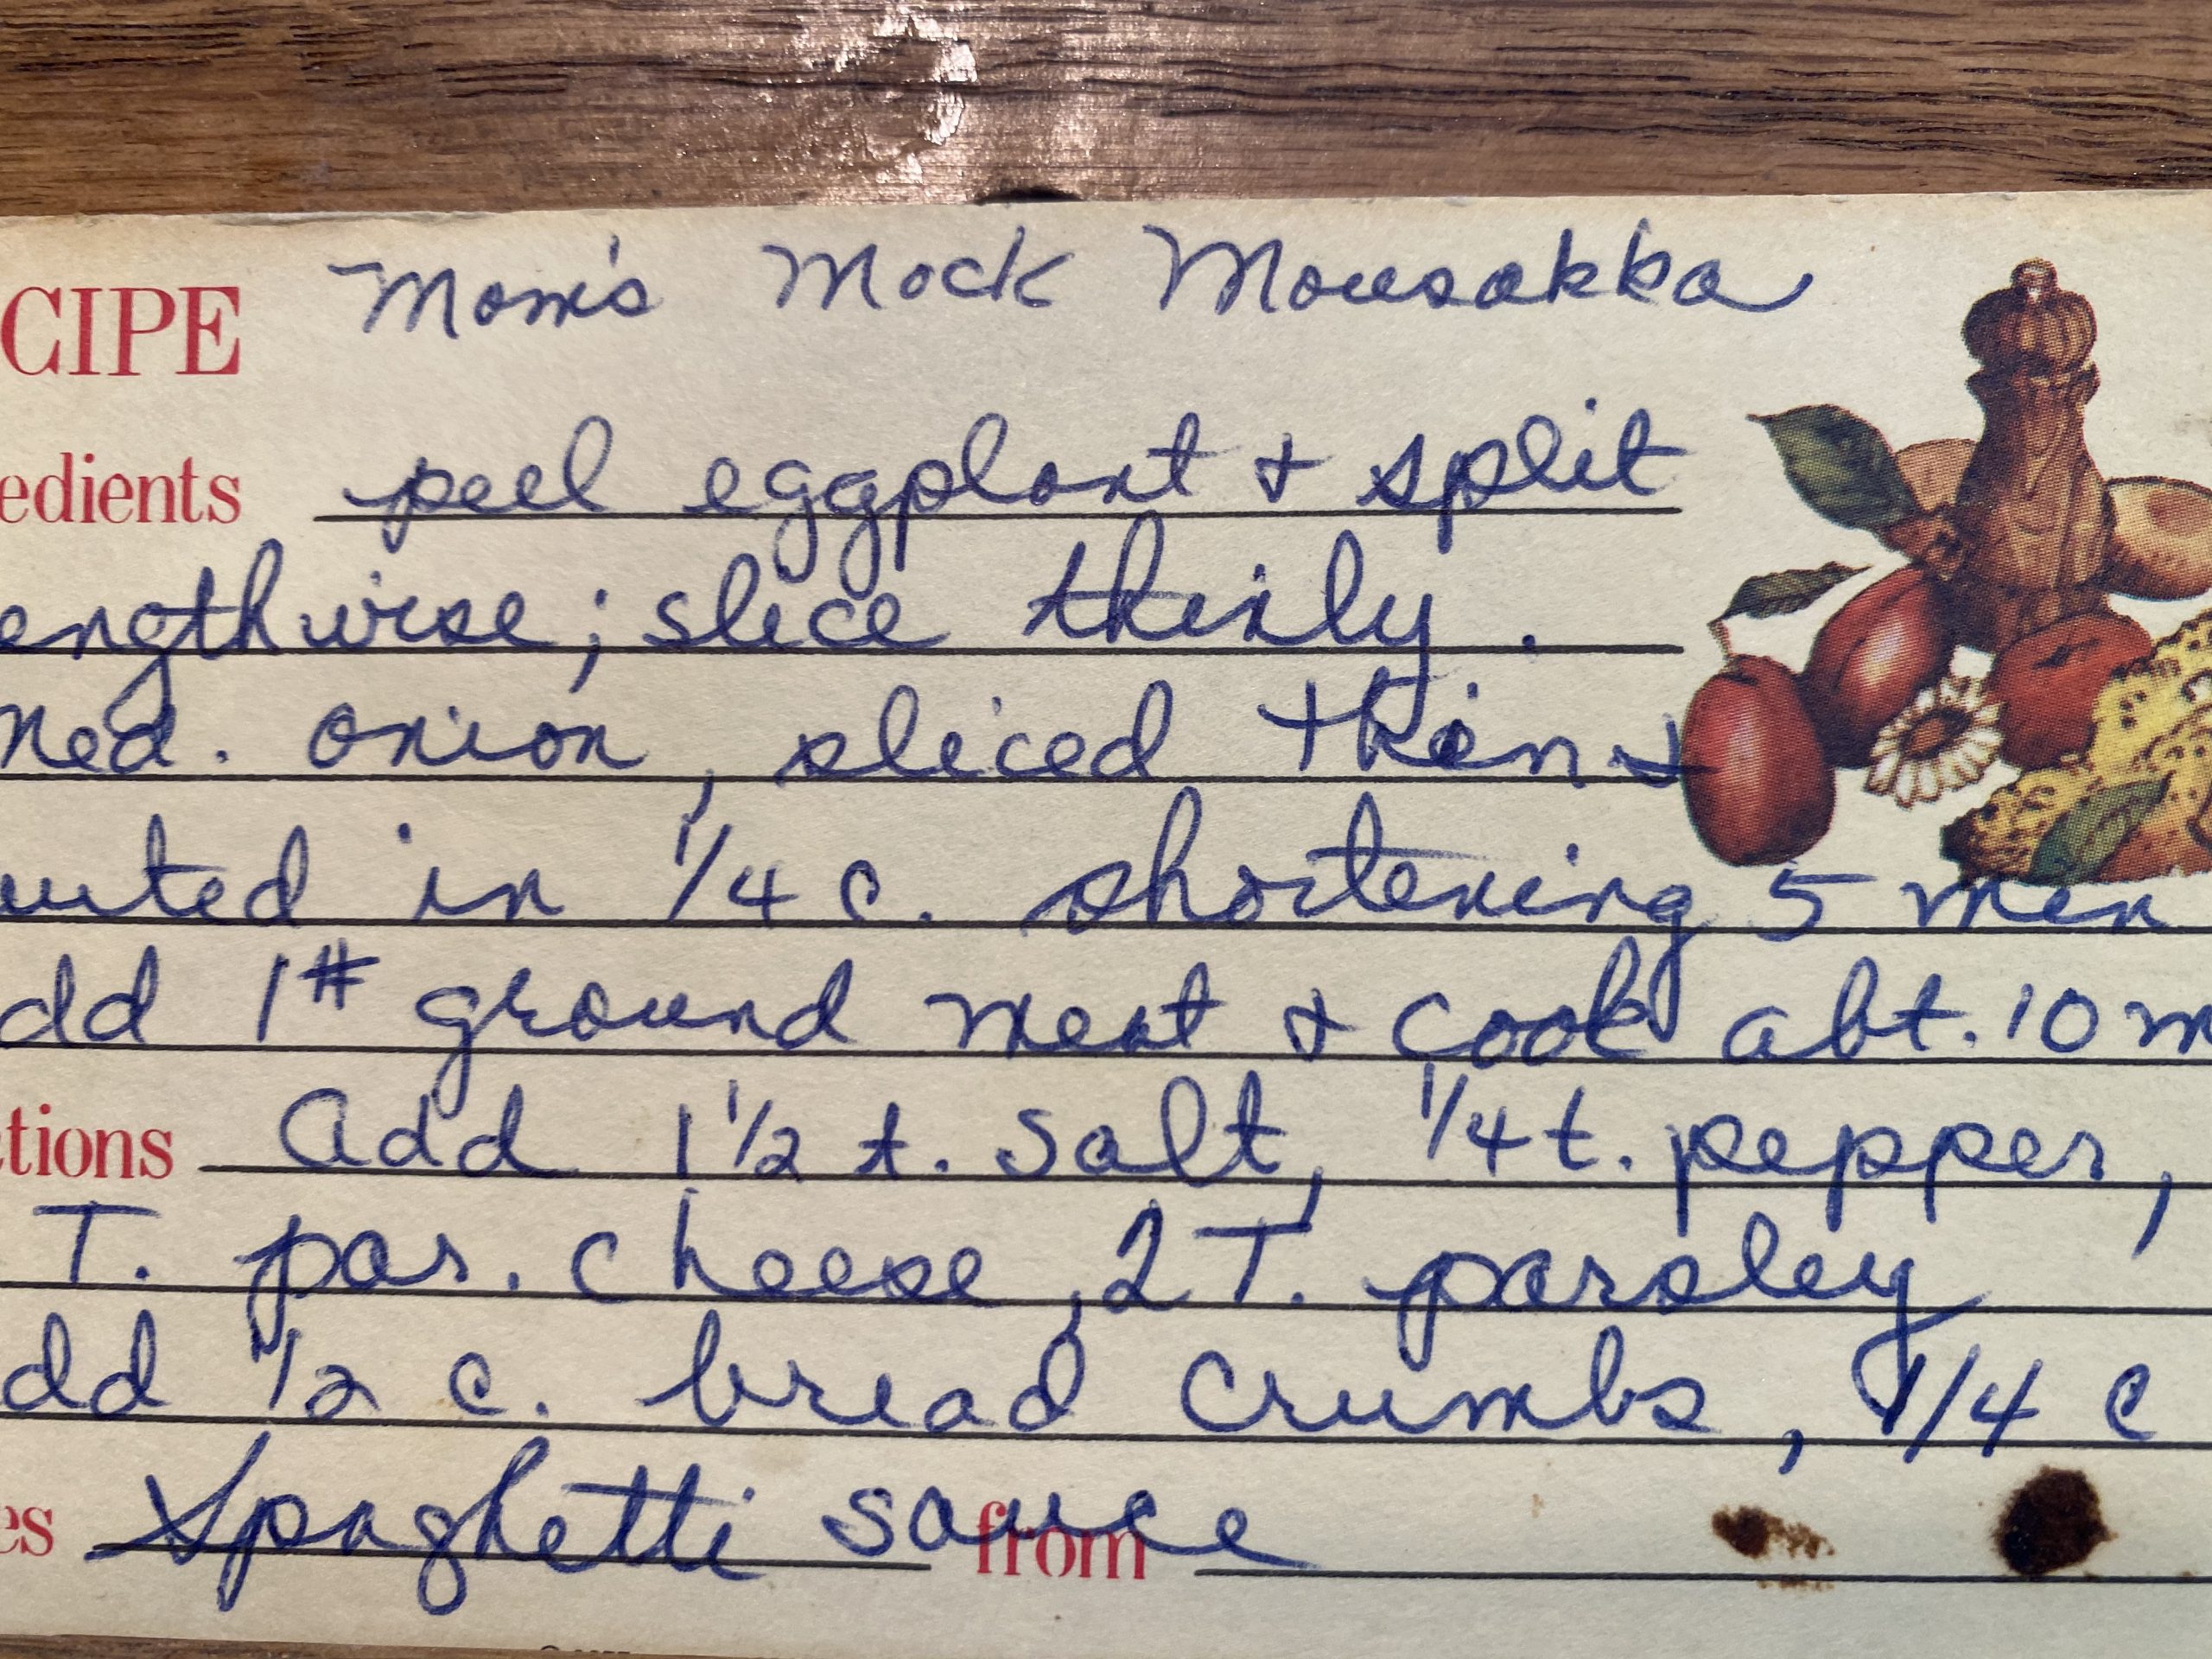 CIPE Mom's Mock Mousakka
edients peel eggplant & split
engthwise; slice thinly.
med. onion, sliced thin &
auted in 1/4 c. shortening 5 min
dd 1# ground meat & cook abt. 10 m
ctions Add 1 1/2 t. salt, 1/4 t. pepper,
T. par. cheese, 2 T. parsley
dd 1/2 c. bread crumbs, 1/4 c
es Spaghetti sauce from